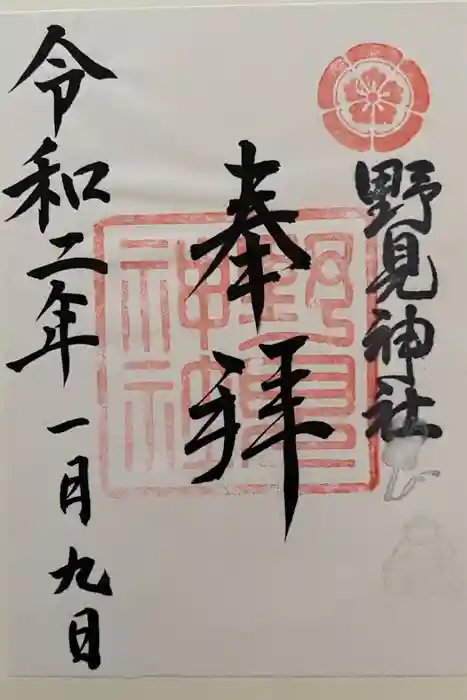 野見神社
奉拝
野見
神社
令和二年一月九日